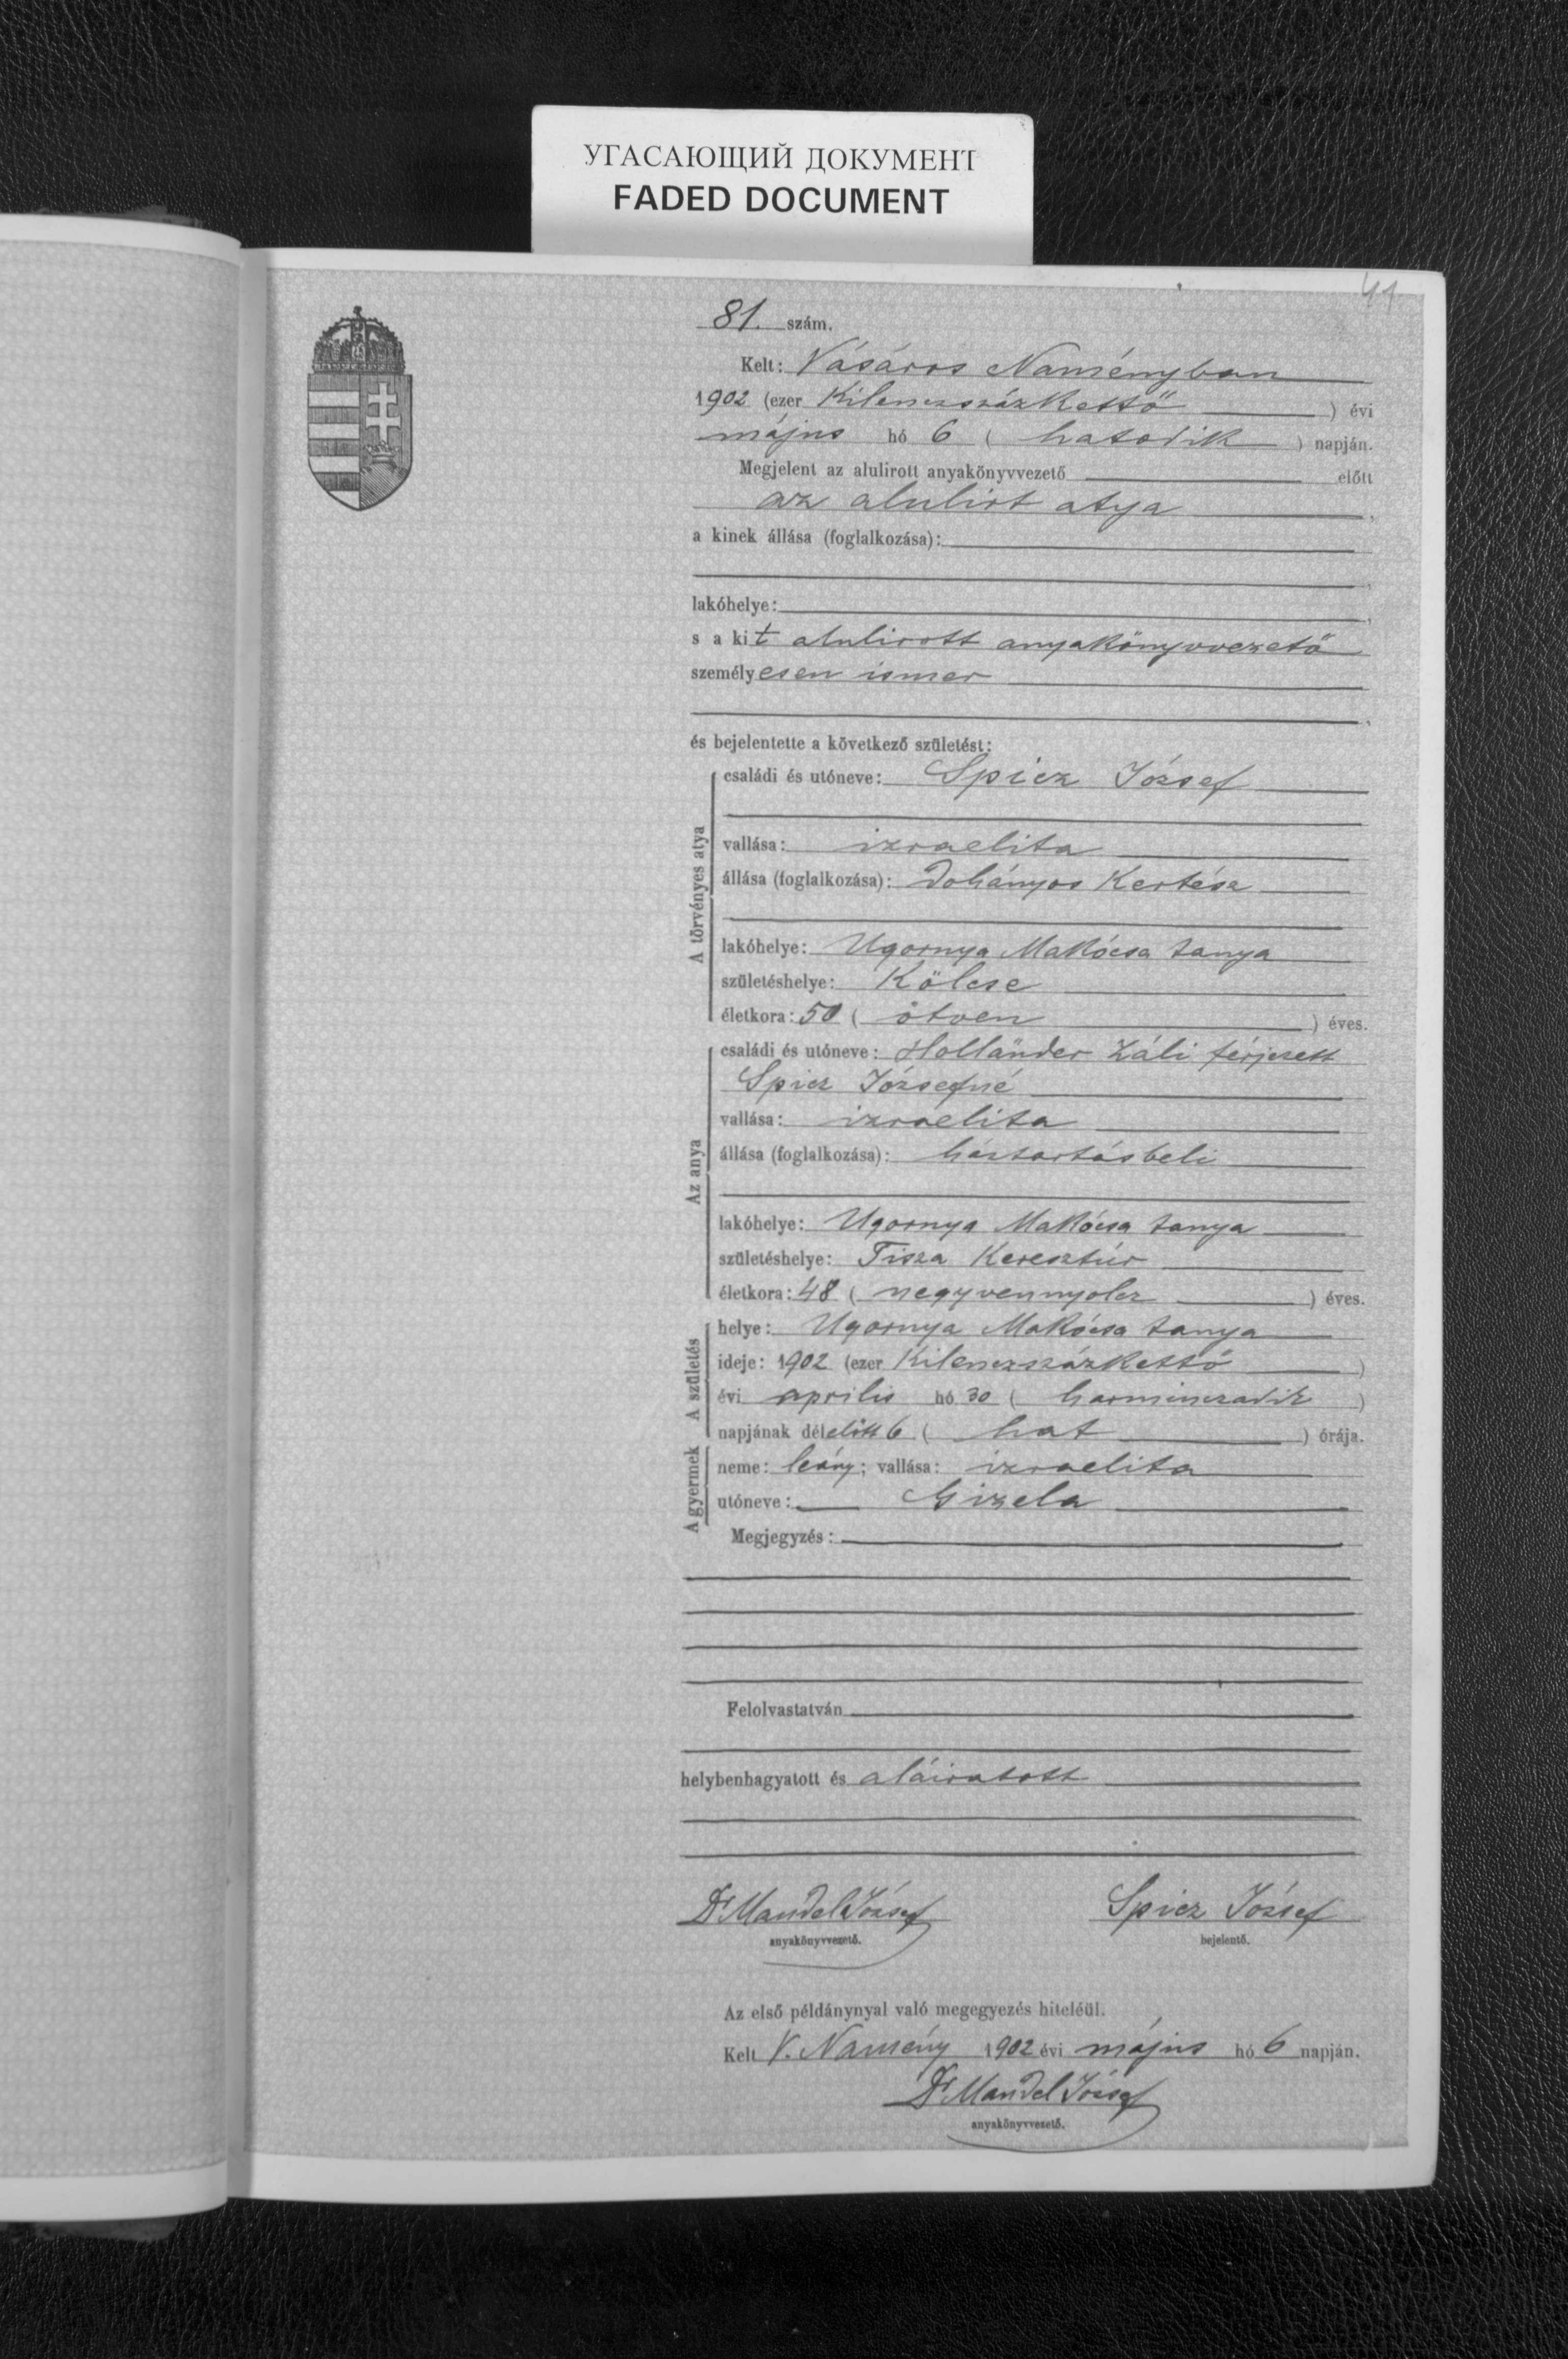 УГАСАЮЩИЙ ДОКУМЕНТ
FADED DOCUMENT
41
81. szám.
Kelt: Vásáros Naményban
1902 (ezer Kilenczszázkettő) évi
május hó 6 (hatodik) napján.
Megjelent az alulirott anyakönyvvezető előtt
az alulirt atya,
a kinek állása (foglalkozása):
lakóhelye:
s a kit alulirott anyakönyvvezető
személyesen ismer
és bejelentette a következő születést:
A törvényes atya
családi és utóneve: Spicz József
vallása: izraelita
állása (foglalkozása): dohányos Kertész
lakóhelye: Ugornya Makócsa tanya
születéshelye: Kölcse
életkora: 50 (ötven) éves.
Az anya
családi és utóneve: Holländer Záli férjezett
Spicz Józsefné
vallása: izraelita
állása (foglalkozása): háztartásbeli
lakóhelye: Ugornya Makócsa tanya
születéshelye: Tisza Keresztúr
életkora: 48 (negyvennyolcz) éves.
A születés
helye: Ugornya Makócsa tanya
ideje: 1902 (ezer Kilenczszázkettő)
évi április hó 30 (harminczadik)
napjának délelőtt 6 (hat) órája.
A gyermek
neme: leány; vallása: izraelita
utóneve: Gizela
Megjegyzés:
Felolvastatván
helybenhagyatott és aláiratott
Dr Mandel József Spicz József
anyakönyvvezető. bejelentő.
Az első példánynyal való megegyezés hiteléül.
Kelt V. Namény 1902 évi május hó 6 napján.
Dr Mandel József
anyakönyvvezető.